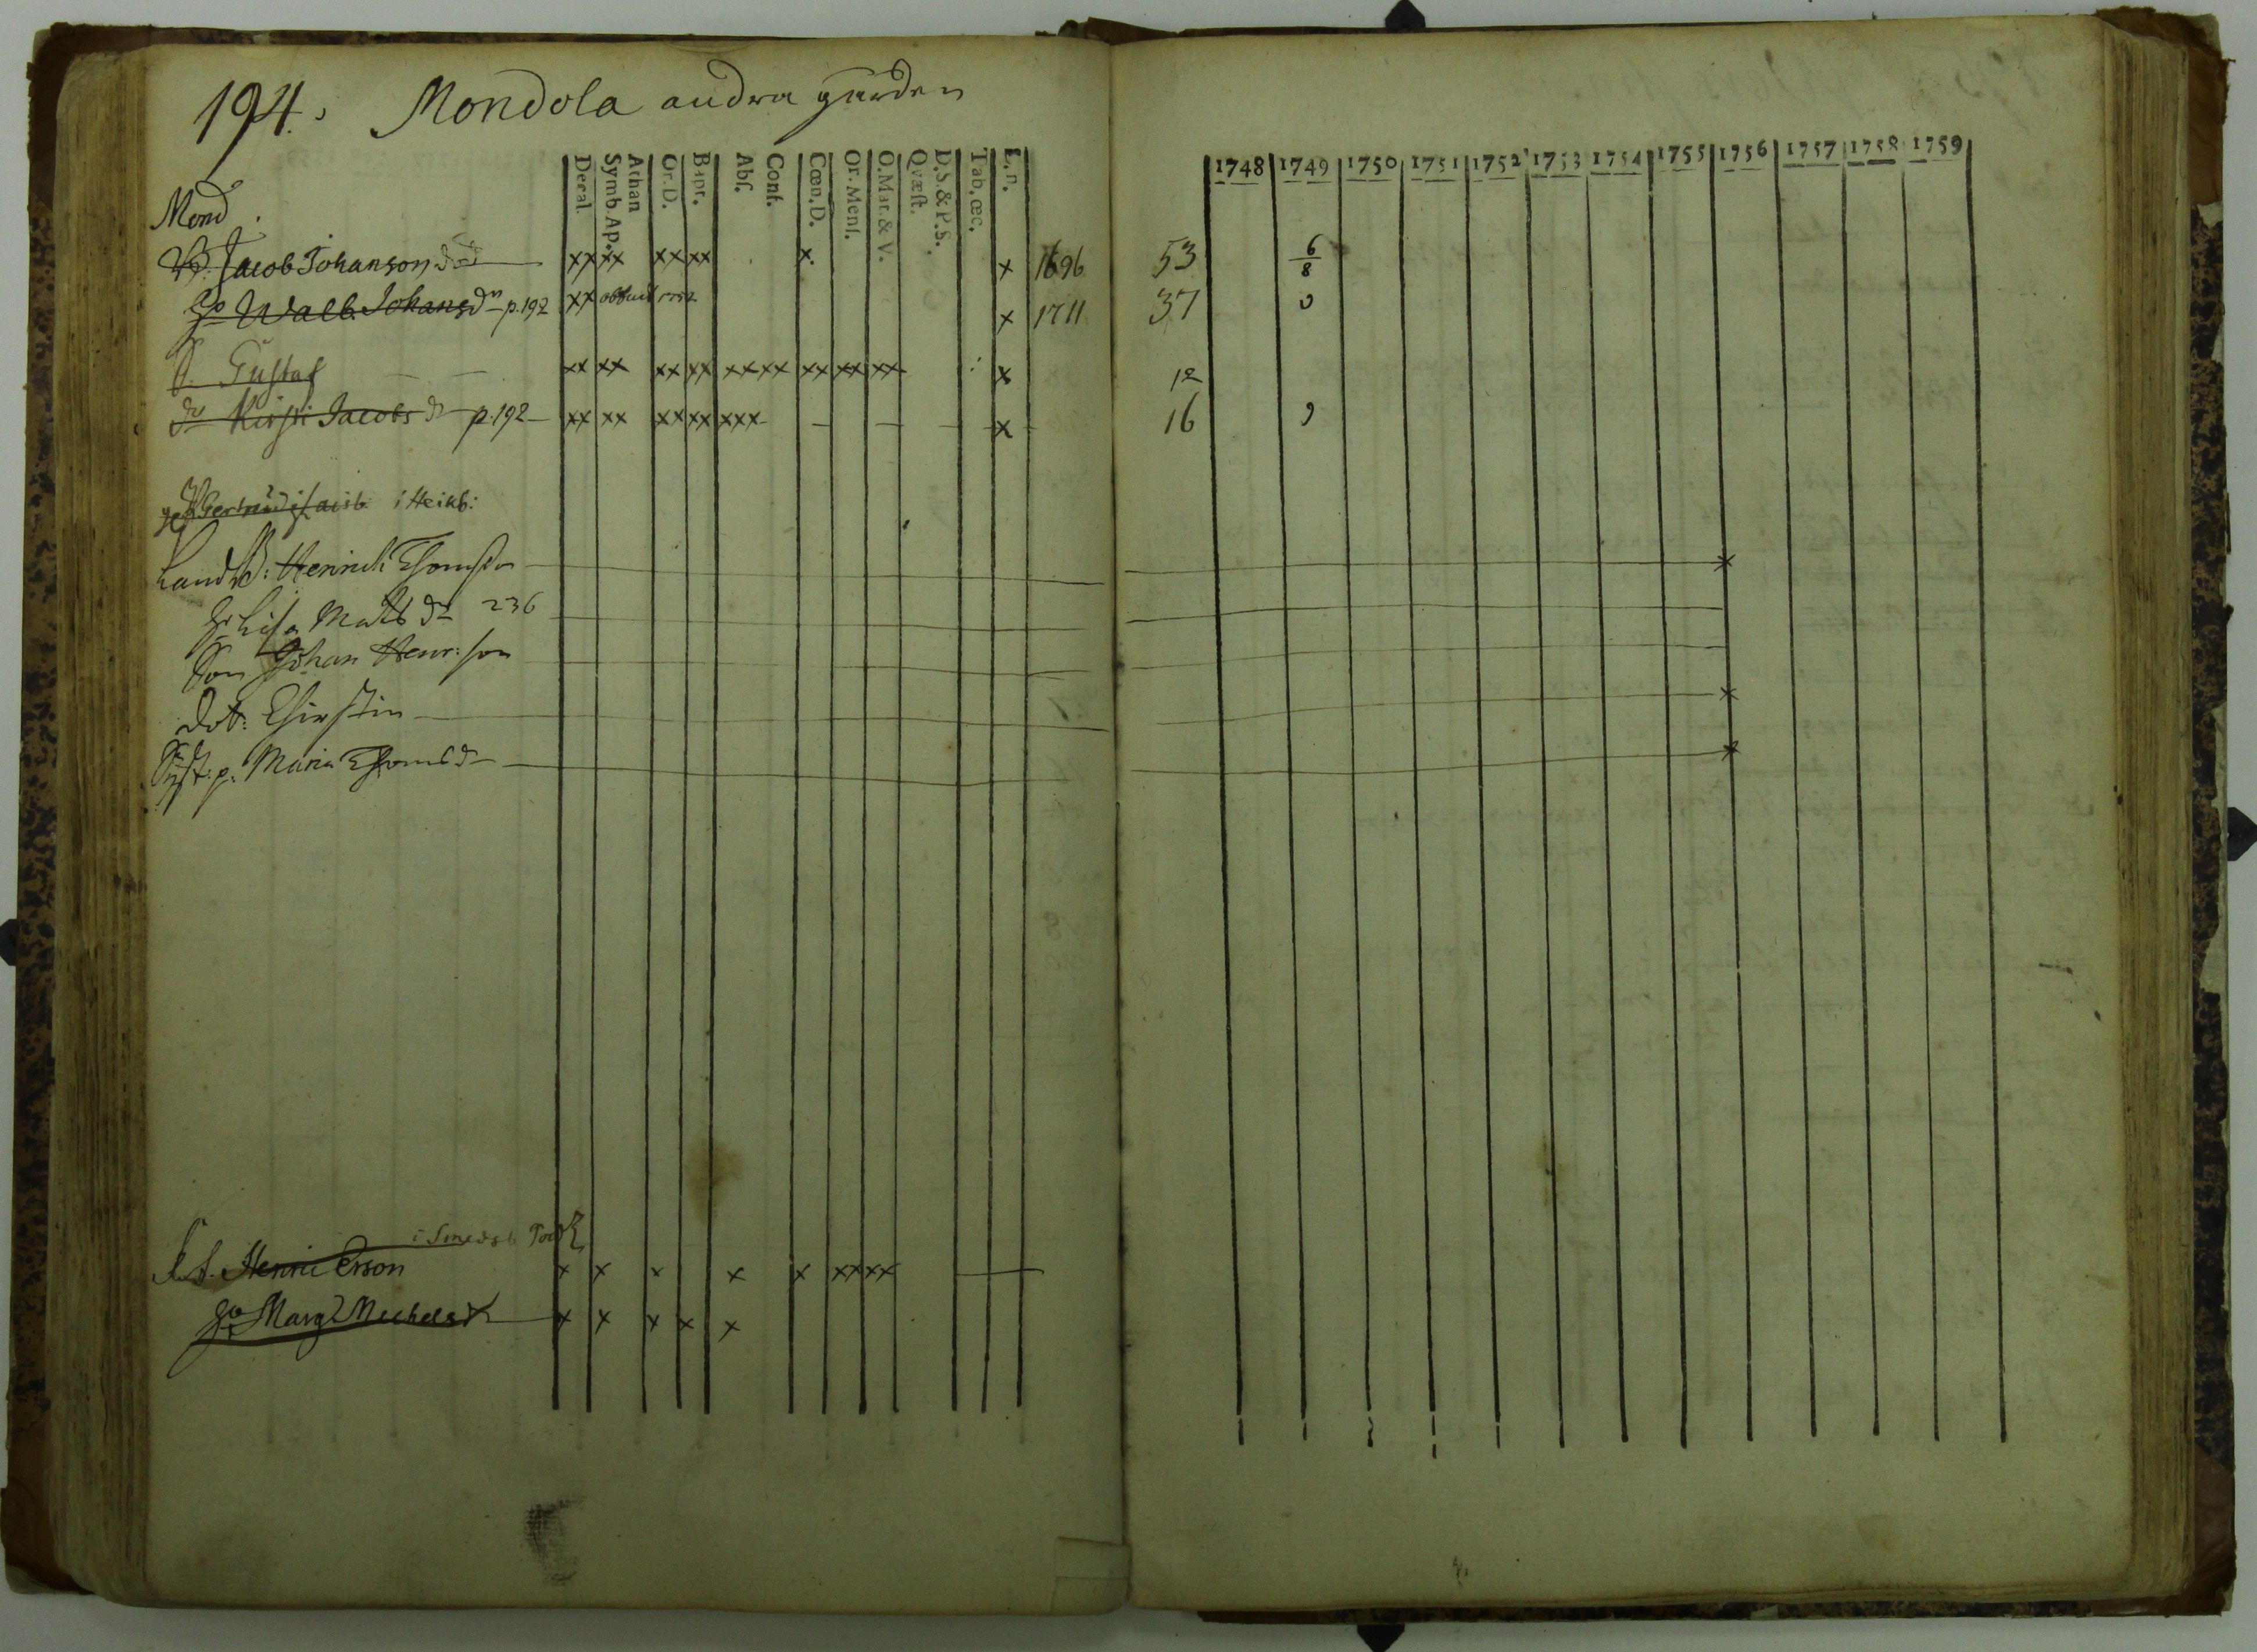 194. Mondola andra gården
Decal. Symb. Ap. Athan Or. D. Bapt. Abſ. Conf. Cœn. D. Or. Menſ. O. Mat. & V. Qvæſt. D. S. & P. S. Tab. œc. L. n. 1748 1749 1750 1751 1752 1753 1754 1755 1756 1757 1758 1759
Mond
B. Jacob Johanson död xx xx xx xx x x 1696 53 6/8
H:o Walb. Johansd:r p. 192 xx 1752 x 1711 37
S. Gustaf xx xx xx xx xxxx xx xx xx x 12
d:r Kirsti Jacobs d:r p. 192 xx xx xx xx xxx x 16 9
Gertrud i Heikb:
Landb: Henrich Thomson x
H:r Lisa Mats d:r 236
Son Johan Henr: son
dot: Chirstin x
Syst: p. Maria Thoms d:r x
i Smedsb
Henric Erson x x x x x xx xx
H:o Marg Michels d:r x x x x x